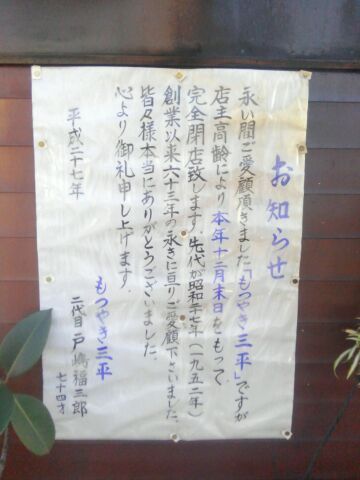 お知らせ
永い間ご愛顧頂きました「もつやき三平」ですが
店主高齢により本年十二月末日をもって
完全閉店致します。先代が昭和二十七年(一九五二年)
創業以来六十三年の永きに亘りご愛顧下さいました、
皆々様本当にありがとうございました。
心より御礼申し上げます。
平成二十七年
もつやき三平
二代目 戸嶋福三郎
七十四才